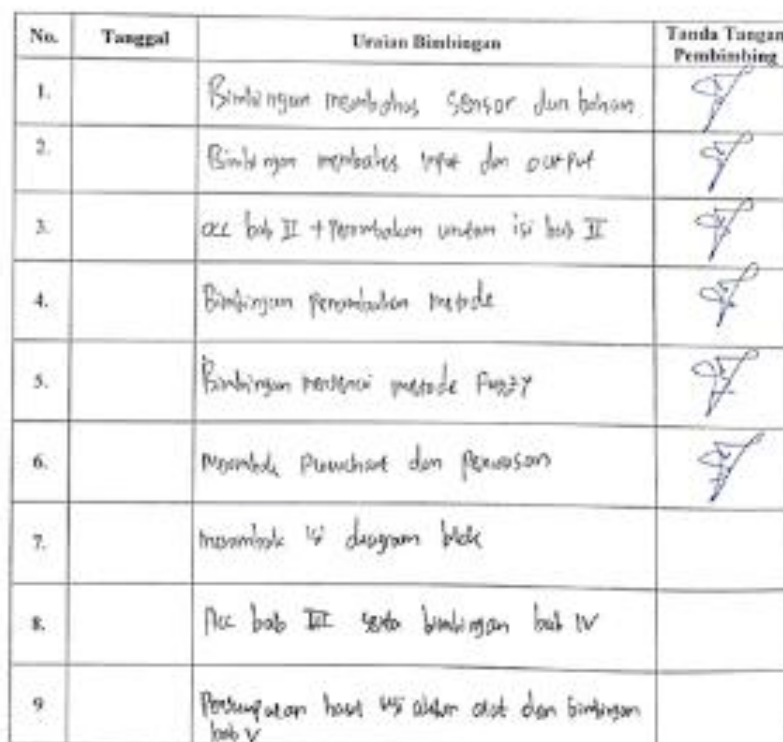 No. Tanggal Uraian Bimbingan Tanda Tangan
Pembimbing
1. Bimbingan membahas sensor dan bahan
2. Bimbingan membahas input dan output
3. acc bab II + Perombakan urutan isi bab II
4. Bimbingan perombakan metode
5. Bimbingan metode Fuzzy
6. merombak Flowchart dan
7. merombak isi diagram blok
8. Acc bab III serta bimbingan bab IV
9 hasil uji alat dan bimbingan
bab V